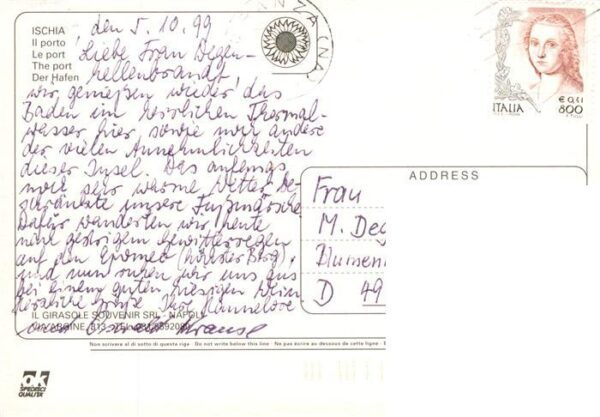 ISCHIA
Il porto
Le port
The port
Der Hafen
, den 5.10.99
Liebe Frau Degen-
hellenbrandt,
wir genießen wieder das
Baden im herrlichen Thermal-
wasser hier, sowie wir andere
der vielen Annehmlichkeiten
dieser Insel. Das anfangs
noch sehr warme Wetter be-
unsere
Dafür wanderten wir heute
nach gestrigem Gewitterregen
auf den Epomeo (höchster Berg),
und nun ruhen wir uns aus
bei einem guten hiesigen Wein
Herzliche Grüße Ihre Hannelore
und Krause
ITALIA
€ 0,41
800
ADDRESS
Frau
M. Deg
Blumen
D 49
IL GIRASOLE SOUVENIR SRL - NAPOLI
Non scrivere al di sotto di questa riga - Do not write below this line - Ne pas écrire au dessous de cette ligne
ok
SPEDISCI
QUALITÀ